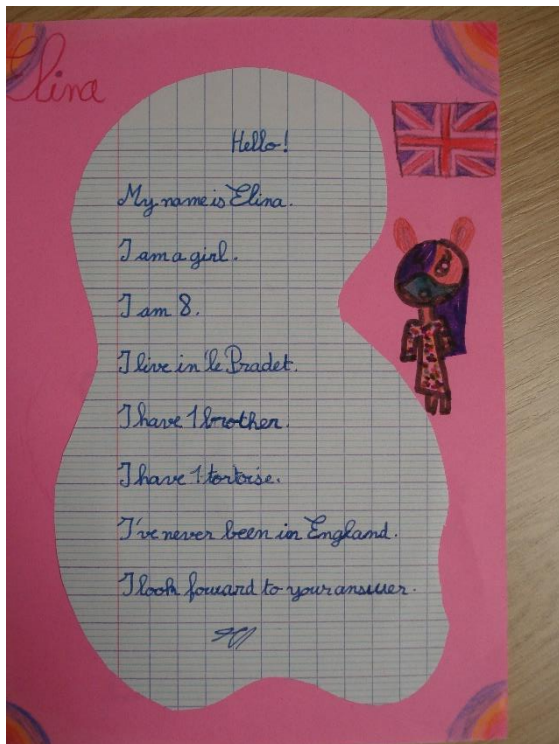 Elina
Hello!
My name is Elina.
I am a girl.
I am 8.
I live in le Pradet.
I have 1 brother.
I have 1 tortoise.
I've never been in England.
I look forward to your answer.